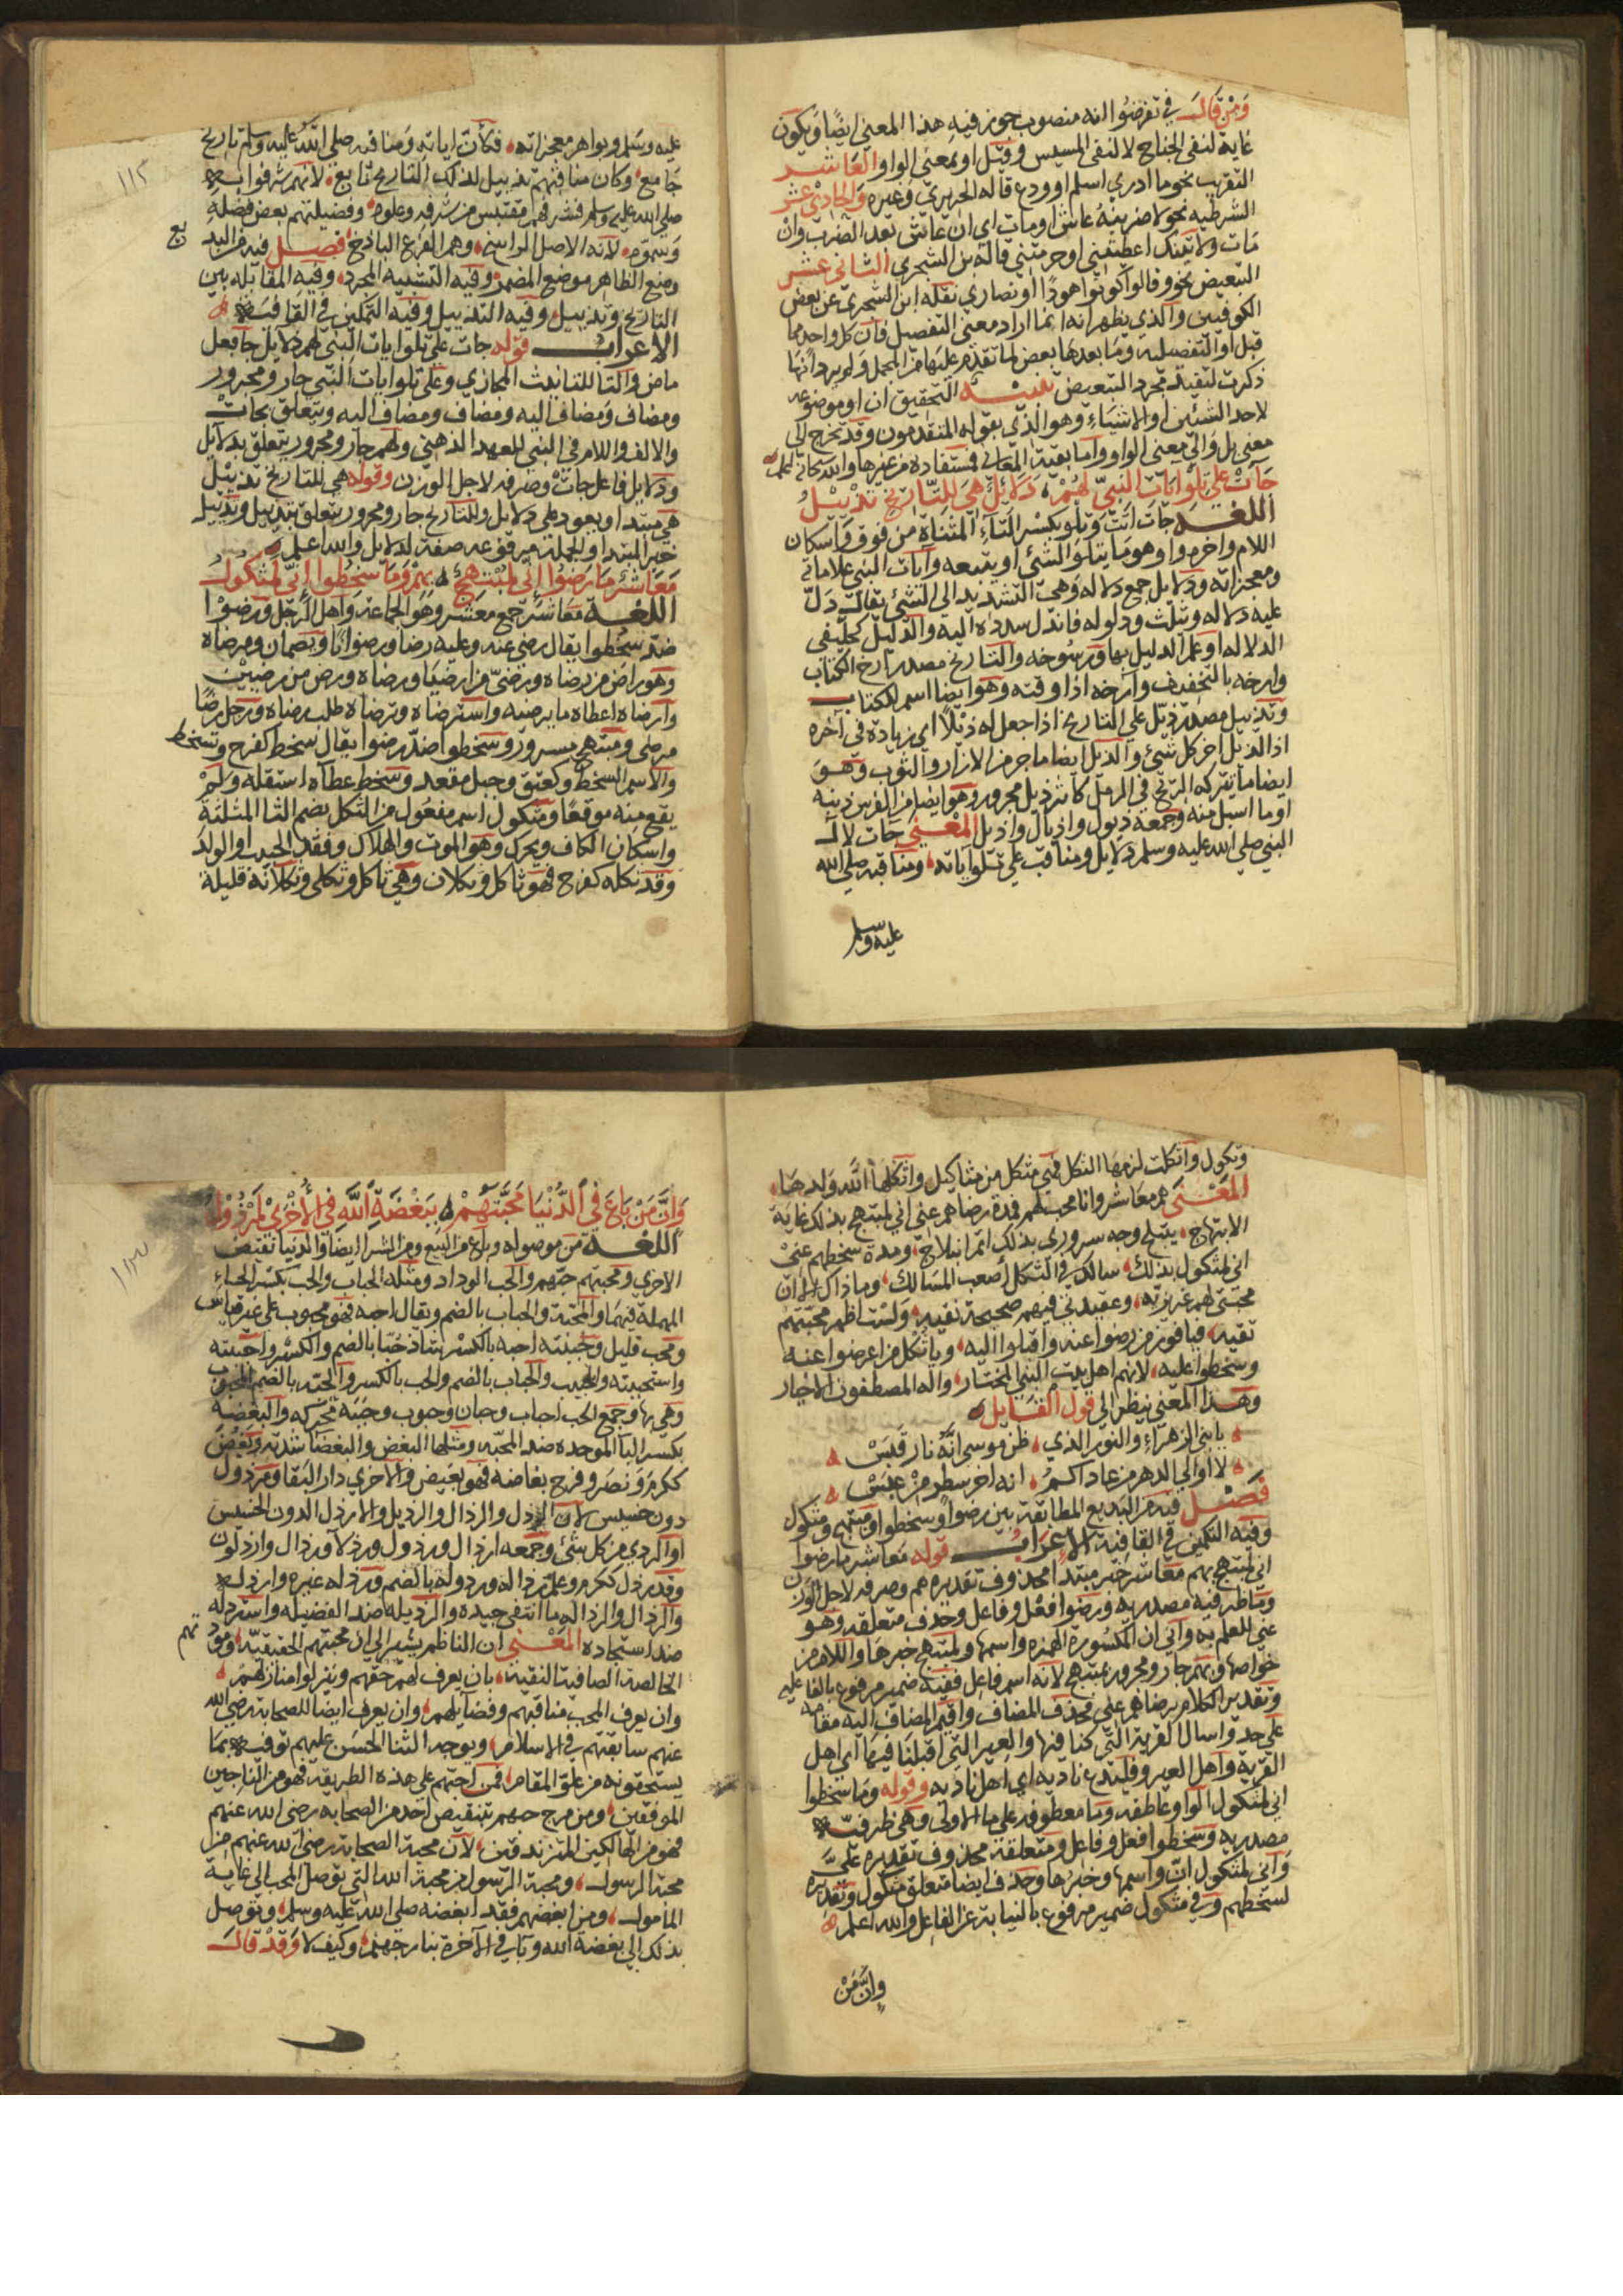 وَمَنْ قَالَ في تفرضوا انه منصوب جوز فيه هذا المعنى ايضًا ويكون
غاية لنفي الجناح لا لنفي المسيس وقيل او بمعنى الواو العاشر
التقريب نحو ما ادري اسلم او ودع قاله الحريري وغيره والحادي عشر
الشرطيه نحو لاضربنه عاش او مات اي ان عاش بعد الضرب وان
مات ولاتينك اعطيتني او حرمتني قاله بن الشجري الثاني عشر
التبعيض نحو وقالوا كونوا هودًا او نصاري نقله ابن الشجري عن بعض
الكوفيين والذي يظهر انه انما اراد معنى التفصيل فان كل واحد مما
قبل او التفصيليه وما بعدها بعض لما تقدم عليهما من المجمل ولم يرد انها
ذكرت لتفيد مجرد التبعيض تنبيه التحقيق ان او موضوعه
لاحد الشئين او الاشياء وهو الذي يقوله المتقدمون وقد تخرج الى
معنى بل والى معنى الواو واما بقية المعاني فمستفاده من غيرها والله سبحانه اعلم
جَاتْ عَلَى تِلْوِ ايَاتِ النَّبِيِّ لَهُمْ دَلَائِلٌ هِيَ لِلتَّارِيخِ تَذْيِيْلُ
اللغه جات اتت وتلو بكسر التاء المثناة من فوق واسكان
اللام واخره واو وهو ما يتلو الشئ او يتبعه وايات النبي علاماته
ومعجزاته ودلايل جمع دلاله وهي التسديد الى الشئ يقال دلّ
عليه دلاله ويثلث ودلوله فاندل سدده اليه والدليل كخليفى
الدلاله او علم الدليل بها ورسوخه والتاريخ مصدر ارخ الكتاب
وارخه بالتخفيف وآرخه اذا وقته وهو ايضا اسم للكتاب
وتذييل مصدر ذيّل على التاريخ اذا جعل له ذيلًا اي زيادة في اخره
اذ الذيل اخر كل شئ والذيل ايضا ما جر من الازار والثوب وهو
ايضا ما تتركه الريح في الرمل كاثر ذيل مجرور وهو ايضا من الفرس ذنبه
او ما اسبل منه وجمعه ذيول واذيال واذيل المعنى جات لال
النبي صلى الله عليه وسلم دلايل ومناقب على تلو اياته ومناقبه صلى الله
عليه وسلم
١١٢
عليه وسلم وبواهر معجزاته فكأن اياته ومناقبه صلى الله عليه وسلم تاريخ
جامع وكان مناقبهم تذييل لذلك التاريخ تابع لانهم شرفوا به
صلى الله عليه وسلم فشرفهم مقتبس من شرفه وعلوه وفضيلتهم بعض فضله
وسموه لانه الاصل الراسخ وهم الفرع الباذخ فصل فيه من البديع
وضع الظاهر موضع المضمر وفيه التشبيه المجرد وفيه المقابله بين
التاريخ وتذييل وفيه التذييل وفيه التمكين في القافيه
الاعراب قوله جات على تلو ايات النبي لهم دلايل جا فعل
ماض والتا للتانيث المجازي وعلى تلو ايات النبي جار ومجرور
ومضاف ومضاف اليه ومضاف ومضاف اليه ويتعلق بجات
والالف واللام في النبي للعهد الذهني ولهم جار ومجرور يتعلق بدلايل
ودلايل فاعل جات وصرفه لاجل الوزن وقوله هي للتاريخ تذييل
هي مبتدا ويعود على دلايل وللتاريخ جار ومجرور يتعلق بتذييل وتذييل
خبر المبتدا والجملة مرفوعه صفة لدلايل والله اعلم
مَعَاشِرٌ مَا رَضُوْا اِنِّي لَمُبْتَهِجٌ بِهِمْ وَمَا سَخِطُوْا اِنِّي لَمَثْكُوْلُ
اللغه معاشر جمع معشر وهو الجماعة واهل الرجل ورضوا
ضدّ سخطوا يقال رضي عنه وعليه رضا ورضوانا ويضمان ومرضاة
وهو راض من رضاة ورضيّ من ارضيا ورضاة ورض من رضين
وارضاه اعطاه ما يرضيه واسترضاه وترضاه طلب رضاه ورجل رضًا
مرضى ومبتهج مسرور وسخطوا ضد رضوا يقال سخط كفرح وتسخط
والاسم السخط كعنق وجبل ومقعد وسخط عطاه استقله ولم
يقع منه موقعًا ومثكول اسم مفعول من الثكل بضم الثا المثلثة
واسكان الكاف ويحرك وهو الموت والهلاك وفقد الحبيب او الولد
وقد ثكله كفرح فهو ثاكل وثكلان وهي ثاكل وثكلى وثكلانه قليلة
وثكول واثكلت لزمها الثكل فهي مثكل من مثاكيل واثكلها الله ولدها
المعنى هم معاشر وانا محب لهم فمدة رضاهم عني اني لمبتهج بذلك غاية
الابتهاج يبتلج وجه سروري بذلك اتم ابتلاج ومدة سخطهم عني
اني لمثكول بذلك سالك في الثكل أصعب المسالك وما ذاك الا ان
محبتى لهم غريزيه وعقيدتي فيهم صحيحة نقيه ولست اظهر محبتهم
تقيه فيا فوز من رضوا عنه واقبلوا اليه ويا ثكل من اعرضوا عنه
وسخطوا عليه لانهم اهل بيت النبي المختار واله المصطفون الاخيار
وهذا المعنى ينظر الى قول القايل
يا بني الزهراء والنور الذي ظن موسى انه نار قبس
لا أوالي الدهر من عاداكمُ انه اخر سطر من عبس
فصل فيه من البديع المطابقة بين رضوا وسخطوا ومبتهج ومثكول
وفيه التمكين في القافية الاعراب قوله معاشر ما رضوا
اني لمبتهج بهم معاشر خبر مبتدا محذوف تقديره هم وصرفه لاجل الوزن
وما ظرفيه مصدريه ورضوا فعل وفاعل وحذف متعلقه وهو
عني للعلم به واني ان المكسورة الهمزه واسمها ولمبتهج خبرها واللام من
خواصها وبهم جار ومجرور بمبتهج لانه اسم فاعل ففيه ضمير مرفوع بالفاعليه
وتقدير الكلام برضاهم علي فحذف المضاف واقيم المضاف اليه مقامه
على حد واسال القرية التي كنا فيها والعير التي اقبلنا فيها اي اهل
القرية واهل العير وفليدع ناديه اي اهل ناديه وقوله وما سخطوا
اني لمثكول الواو عاطفه وما معطوفه على ما الاولى وهي ظرفيه
مصدريه وسخطوا فعل وفاعل ومتعلقه محذوف تقديره عليَّ
واني لمثكول انّ واسمها وخبرها وحذف ايضا متعلق مثكول وتقديره
لسخطهم وفي مثكول ضمير مرفوع بالنيابة عن الفاعل والله اعلم
وإنَّ مَنْ
١١٣
وَاِنَّ مَنْ بَاعَ فِي الدُّنْيَا مَحَبَّتَهُمْ بِبَغْضَةِ اللّهِ فِي الأُخْرَى لَمَرْذُوْلُ
اللغه من موصوله وباع من البيع ومن الشرا ايضا والدنيا نقيض
الاخرى ومحبتهم حبهم والحب الوداد ومثله الحباب والحب بكسر الحاء
المهملة فيهما والمحبة والحباب بالضم ويقال احبه فهو محبوب على غير قياس
ومحب قليل وحببته احبه بالكسر شاذ حبا بالضم والكسر واحببته
واستحببته والحبيب والحباب بالضم والحب بالكسر والحبه بالضم المحبوب
وهي بها وجمع الحب احباب وحبان وحبوب وحببة محركه والبغضه
بكسر البا الموحده ضد المحبه ومثلها البغض والبغضا شدته وبغض
ككرم ونصر وفرح بغاضه فهو بغيض والاخرى دار البقا ومرذول
دون خسيس لان الرذل والرذال والرذيل والارذل الدون الخسيس
او الردي من كل شئ وجمعه ارذال ورذول ورذلا ورذال وارذلون
وقد رذل ككرم وعلم رذاله ورذوله بالضم ورذله غيره وارذله
والرذال والرذاله ما انتفي جيده والرذيله ضد الفضيله واسترذله
ضد استجاده المعنى ان الناظم يشير الى ان محبتهم الحقيقيه ومودتهم
الخالصة الصافية النقيه بان يعرف لهم حقهم وينزلوا منازلهم
وان يعرف المحب مناقبهم وفضايلهم وان يعرف ايضا للصحابة رضي الله
عنهم سابقتهم في الاسلام ويوجه الثنا الحسن عليهم توفيه بما
يستحقونه من علو المقام فمن احبهم على هذه الطريقة فهو من الناجين
الموفقين ومن مرج حبهم بتنقيص احد من الصحابه رضي الله عنهم
فهو من الهالكين المتزندقين لان محبة الصحابة رضي الله عنهم من
محبة الرسول ومحبة الرسول من محبة الله التي توصل المحب الى غاية
المامول ومن ابغضهم فقد ابغضه صلى الله عليه وسلم وتوصل
بذلك الى بغضة الله وباء في الآخرة بنار جهنم وكيف لا وَقَدْ قَالَ